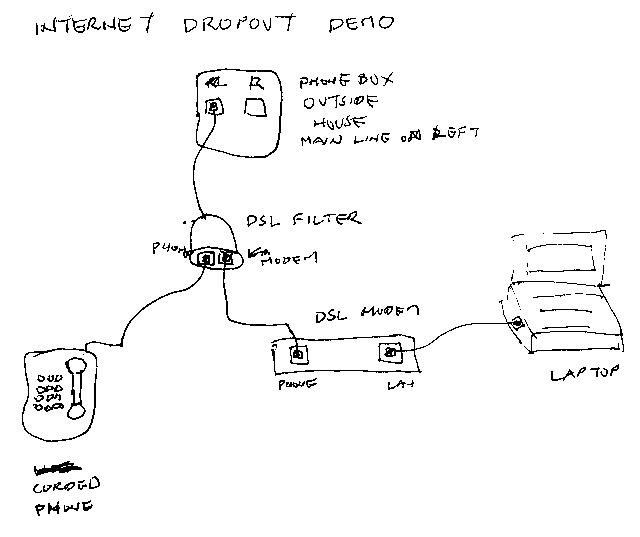 INTERNET DROPOUT DEMO
L R
PHONE BOX
OUTSIDE
HOUSE
MAIN LINE ON LEFT
DSL FILTER
PHONE
MODEM
DSL MODEM
PHONE
LAN
LAPTOP
CORDED
PHONE